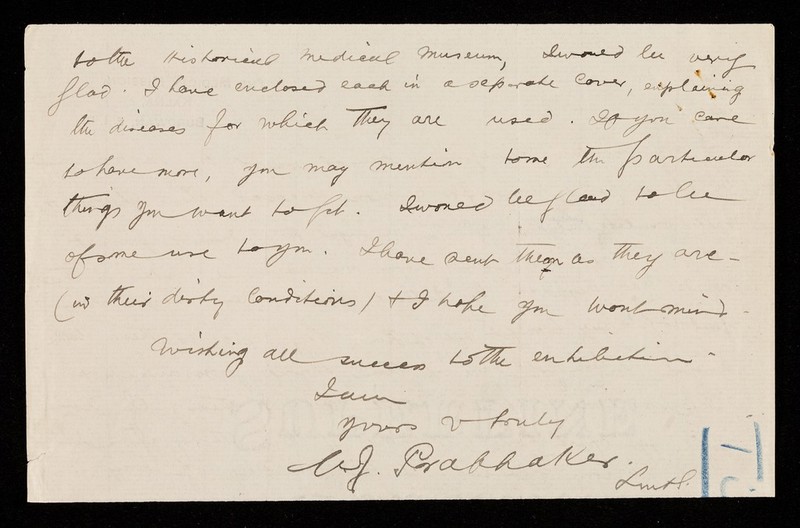 to the Historical Medical Museum, I would be very
glad. I have enclosed each in a separate cover, explaining
the diseases for which they are used. If you care
to have more, you may mention to me the particular
things you want to get. I would be glad to be
of some use to you. I have sent them as they are -
(in their dirty conditions) & I hope you wont mind -
Wishing all success to the exhibition -
I am
yours v truly
Prabhaker.